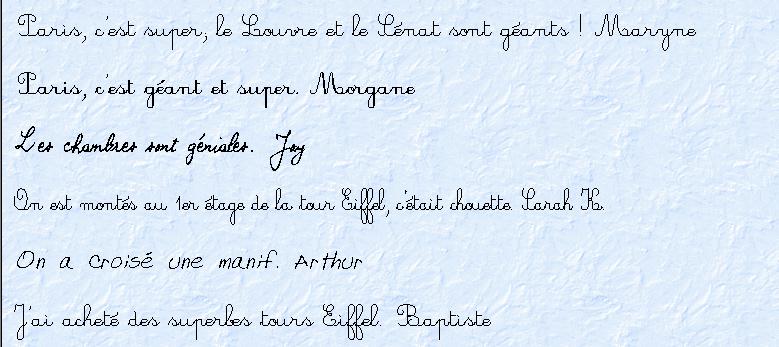 Paris, c'est super, le Louvre et le Sénat sont géants ! Maryne
Paris, c'est géant et super. Morgane
Les chambres sont géniales. Joy
On est montés au 1er étage de la tour Eiffel, c'était chouette. Sarah K.
On a croisé une manif. Arthur
J'ai acheté des superbes tours Eiffel. Baptiste